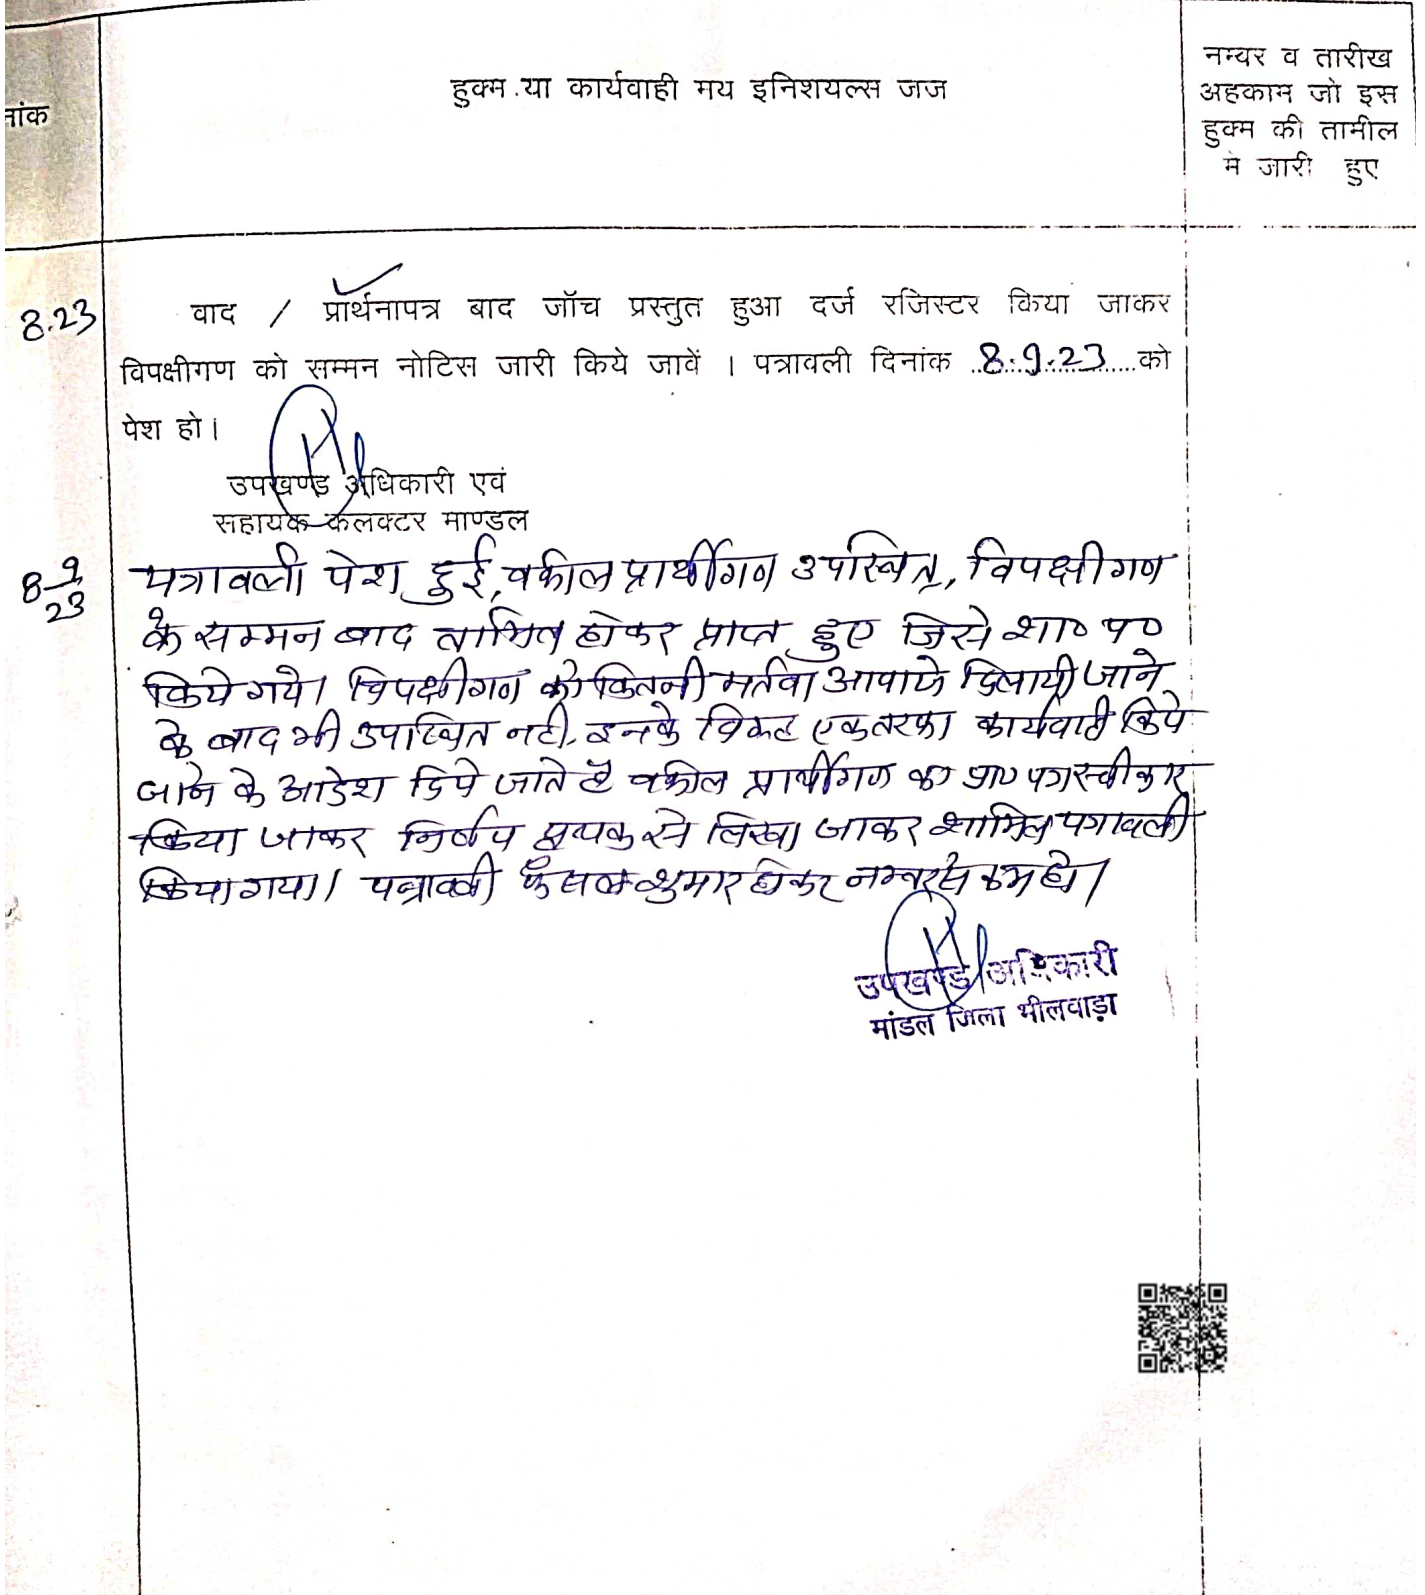 नांक
हुक्म या कार्यवाही मय इनिशयल्स जज
नम्बर व तारीख
अहकाम जो इस
हुक्म की तामील
मे जारी हुए
8.23
वाद / प्रार्थनापत्र बाद जॉच प्रस्तुत हुआ दर्ज रजिस्टर किया जाकर
विपक्षीगण को सम्मन नोटिस जारी किये जावें । पत्रावली दिनांक 8.9.23 को
पेश हो।
उपखण्ड अधिकारी एवं
सहायक कलक्टर माण्डल
8/9/23
पत्रावली पेश हुई, वकील प्रार्थीगण उपस्थित, विपक्षीगण
के सम्मन बाद तामिल होकर प्राप्त हुए जिसे शा० प०
किये गये। विपक्षीगण को कितनी मर्तबा आवाजे दिलायी जाने
के बाद भी उपस्थित नही, इनके विरूद्ध एकतरफा कार्यवाही किये
जाने के आदेश दिये जाते है वकील प्रार्थीगण का प्रा० पत्र स्वीकार
किया जाकर निर्णय पृथक से लिखा जाकर शामिल पत्रावली
किया गया। पत्रावली फैसल शुमार होकर नम्बर से कम हो।
उपखण्ड अधिकारी
मांडल जिला भीलवाड़ा